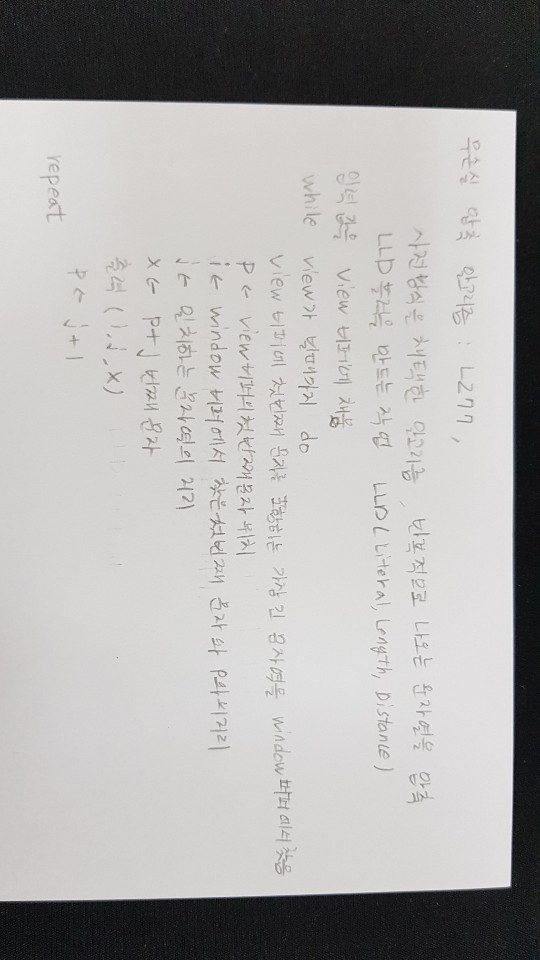 무손실 압축 알고리즘 : LZ77,
사전형식을 채택한 알고리즘, 반복적으로 나오는 문자열을 압축
LLD 블럭을 만드는 작업 LLD ( Literal, Length, Distance )
입력 값을 view 버퍼에 채움
while view가 빌때까지 do
view 버퍼에 첫번째 문자를 포함하는 가장 긴 문자열을 window 버퍼에서 찾음
P ← view버퍼의 첫번째문자 위치
i ← window 버퍼에서 찾은 첫번째 문자와 P와의거리
j ← 일치하는 문자열의 거리
X ← P+j 번째 문자
출력 ( i, j, X )
P ← j + 1
repeat